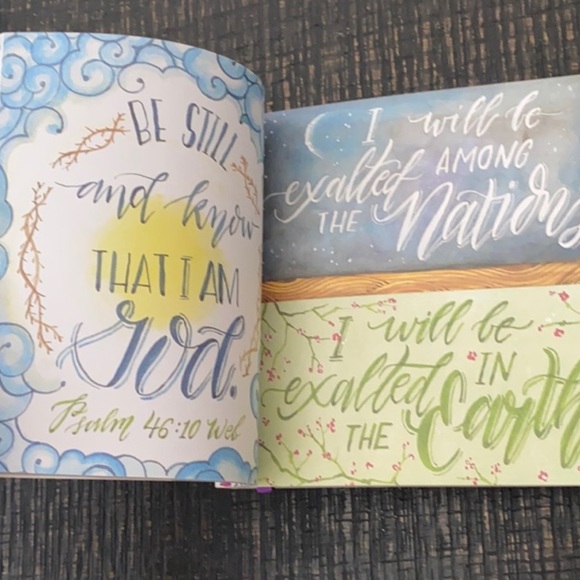 BE STILL
and know
THAT I AM
God.
Psalm 46:10 Web
I will be
exalted AMONG
THE Nations
I will be
exalted IN
THE Earth